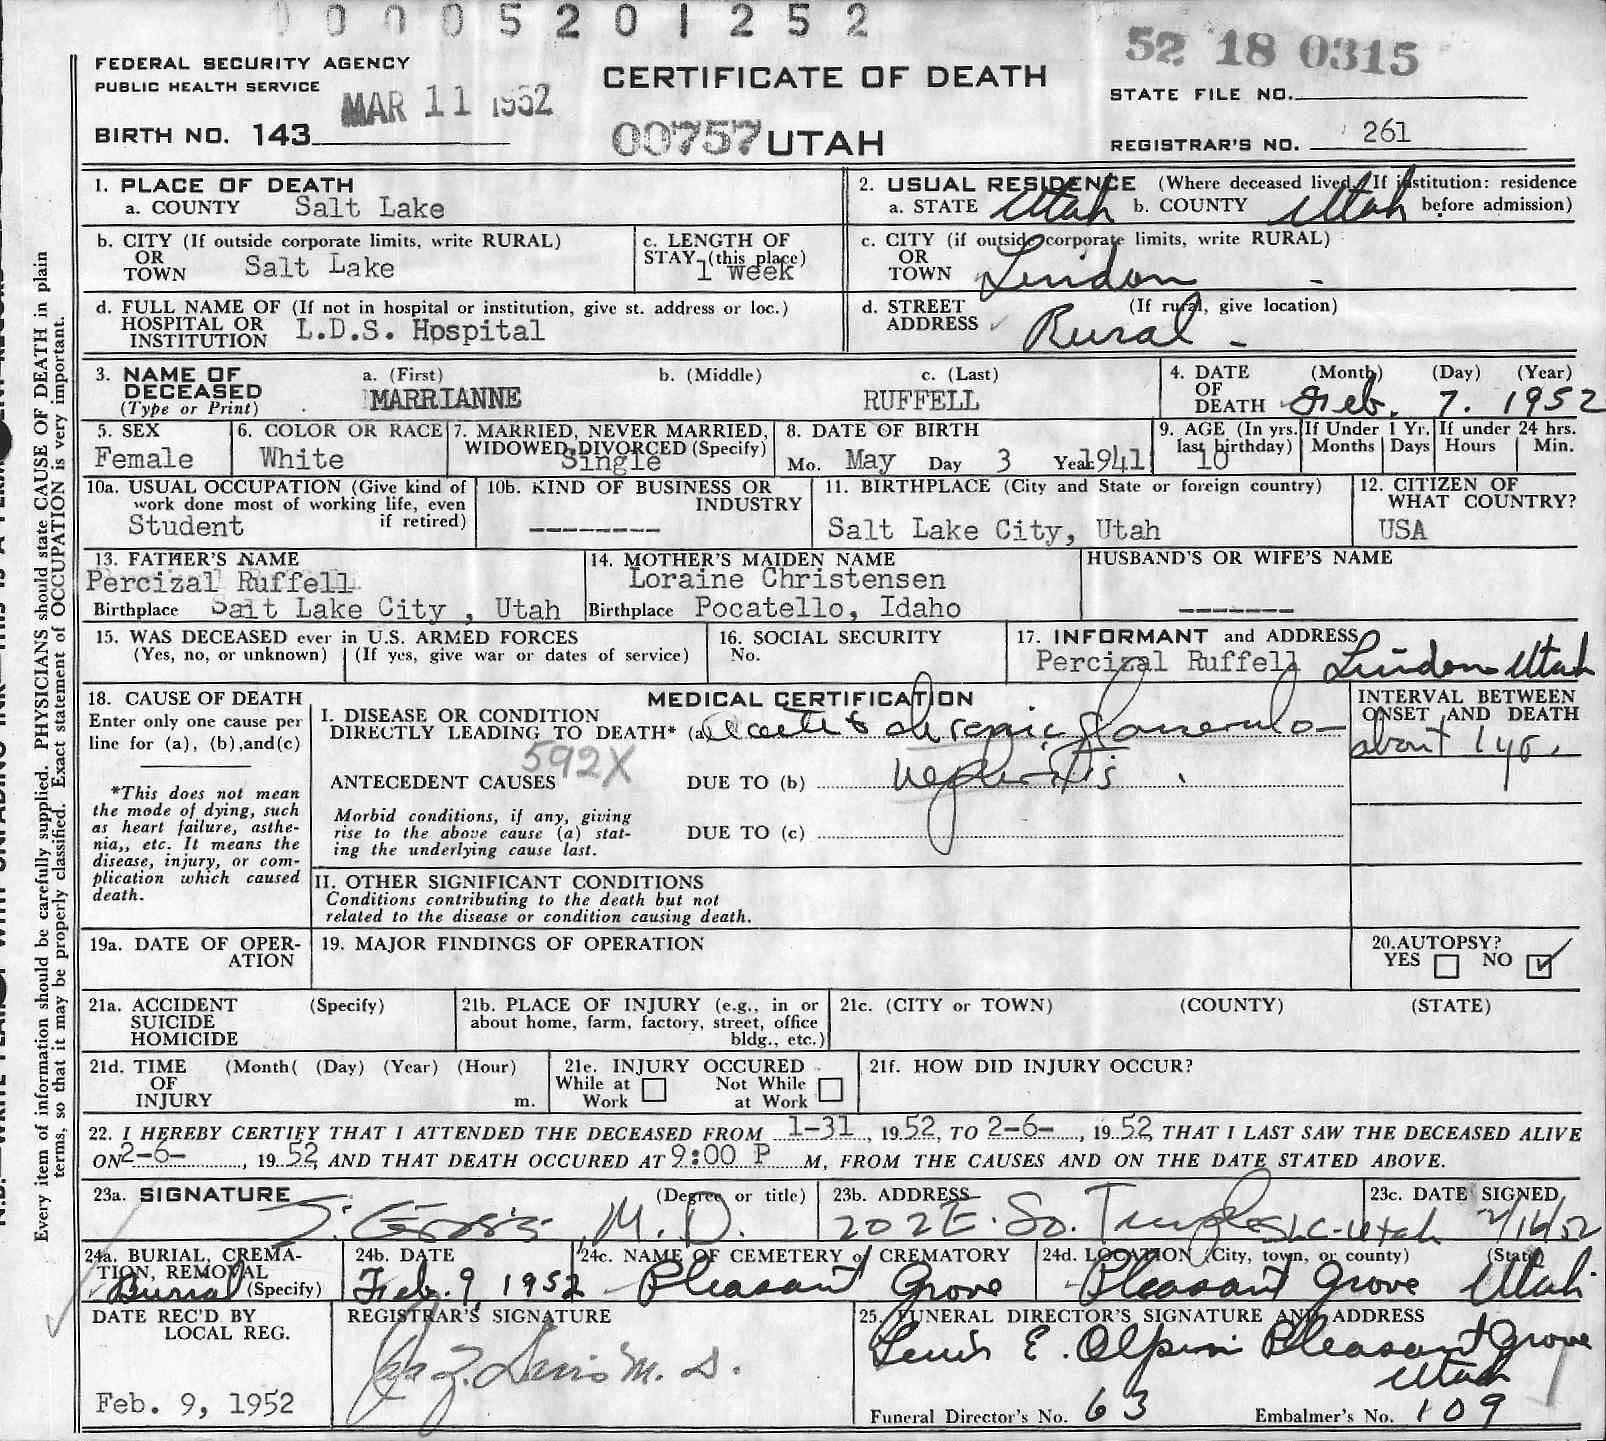 0 0 0 5 2 0 1 2 5 2
52 18 0315
FEDERAL SECURITY AGENCY
PUBLIC HEALTH SERVICE
MAR 11 1952
CERTIFICATE OF DEATH
STATE FILE NO.
BIRTH NO. 143
00757 UTAH
REGISTRAR'S NO. 261
1. PLACE OF DEATH
a. COUNTY Salt Lake
2. USUAL RESIDENCE (Where deceased lived. If institution: residence
a. STATE Utah b. COUNTY Utah before admission)
b. CITY (If outside corporate limits, write RURAL)
OR
TOWN Salt Lake
c. LENGTH OF
STAY (this place)
1 week
c. CITY (if outside corporate limits, write RURAL)
OR
TOWN Lindon -
d. FULL NAME OF (If not in hospital or institution, give st. address or loc.)
HOSPITAL OR
INSTITUTION L.D.S. Hospital
d. STREET (If rural, give location)
ADDRESS Rural -
3. NAME OF
DECEASED
(Type or Print)
a. (First) b. (Middle) c. (Last)
MARRIANNE RUFFELL
4. DATE (Month) (Day) (Year)
OF
DEATH Feb. 7. 1952
5. SEX
Female
6. COLOR OR RACE
White
7. MARRIED, NEVER MARRIED,
WIDOWED, DIVORCED (Specify)
Single
8. DATE OF BIRTH
Mo. May Day 3 Year 1941
9. AGE (In yrs. last birthday) 10
If Under 1 Yr. Months Days
If under 24 hrs. Hours Min.
10a. USUAL OCCUPATION (Give kind of
work done most of working life, even
if retired)
Student
10b. KIND OF BUSINESS OR
INDUSTRY
--------
11. BIRTHPLACE (City and State or foreign country)
Salt Lake City, Utah
12. CITIZEN OF
WHAT COUNTRY?
USA
13. FATHER'S NAME
Percizal Ruffell
Birthplace Salt Lake City , Utah
14. MOTHER'S MAIDEN NAME
Loraine Christensen
Birthplace Pocatello, Idaho
HUSBAND'S OR WIFE'S NAME
-------
15. WAS DECEASED ever in U.S. ARMED FORCES
(Yes, no, or unknown) (If yes, give war or dates of service)
16. SOCIAL SECURITY
No.
17. INFORMANT and ADDRESS
Percizal Ruffell Lindon Utah
18. CAUSE OF DEATH
Enter only one cause per
line for (a), (b), and (c)
*This does not mean
the mode of dying, such
as heart failure, asthe-
nia,, etc. It means the
disease, injury, or com-
plication which caused
death.
MEDICAL CERTIFICATION
I. DISEASE OR CONDITION
DIRECTLY LEADING TO DEATH* (a) Acute & chronic glomerulo-
592X
ANTECEDENT CAUSES DUE TO (b) nephritis
Morbid conditions, if any, giving
rise to the above cause (a) stat-
ing the underlying cause last.
DUE TO (c)
INTERVAL BETWEEN
ONSET AND DEATH
about 1 yr.
II. OTHER SIGNIFICANT CONDITIONS
Conditions contributing to the death but not
related to the disease or condition causing death.
19a. DATE OF OPER-
ATION
19. MAJOR FINDINGS OF OPERATION
20. AUTOPSY?
YES NO
21a. ACCIDENT (Specify)
SUICIDE
HOMICIDE
21b. PLACE OF INJURY (e.g., in or
about home, farm, factory, street, office
bldg., etc.)
21c. (CITY or TOWN) (COUNTY) (STATE)
21d. TIME (Month( (Day) (Year) (Hour)
OF
INJURY m.
21e. INJURY OCCURED
While at Work
Not While at Work
21f. HOW DID INJURY OCCUR?
22. I HEREBY CERTIFY THAT I ATTENDED THE DECEASED FROM 1-31, 1952, TO 2-6-, 1952 THAT I LAST SAW THE DECEASED ALIVE
ON 2-6-, 1952 AND THAT DEATH OCCURED AT 9:00 P M, FROM THE CAUSES AND ON THE DATE STATED ABOVE.
23a. SIGNATURE (Degree or title)
M.D.
23b. ADDRESS
202 E. So. Temple SLC-Utah
23c. DATE SIGNED
2/16/52
24a. BURIAL, CREMA-
TION, REMOVAL
Burial (Specify)
24b. DATE
Feb. 9, 1952
24c. NAME OF CEMETERY or CREMATORY
Pleasant Grove
24d. LOCATION (City, town, or county) (State)
Pleasant Grove Utah
DATE REC'D BY
LOCAL REG.
Feb. 9, 1952
REGISTRAR'S SIGNATURE
M.D.
25. FUNERAL DIRECTOR'S SIGNATURE AND ADDRESS
E. Pleasant Grove
Utah
Funeral Director's No. 63 Embalmer's No. 109
Every item of information should be carefully supplied. PHYSICIANS should state CAUSE OF DEATH in plain
terms, so that it may be properly classified. Exact statement of OCCUPATION is very important.